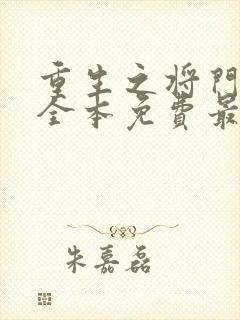 重生之将门
全本免费最
朱嘉磊